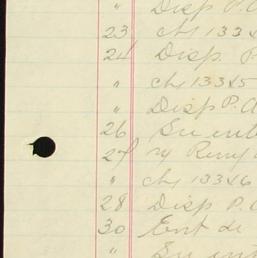 " Disp P.
23 ch 133
24 Disp. P
" ch 13345
" Disp P.
26 Su
27 ry
" ch 13346
28 Disp P.
30 Ent de
" Su int